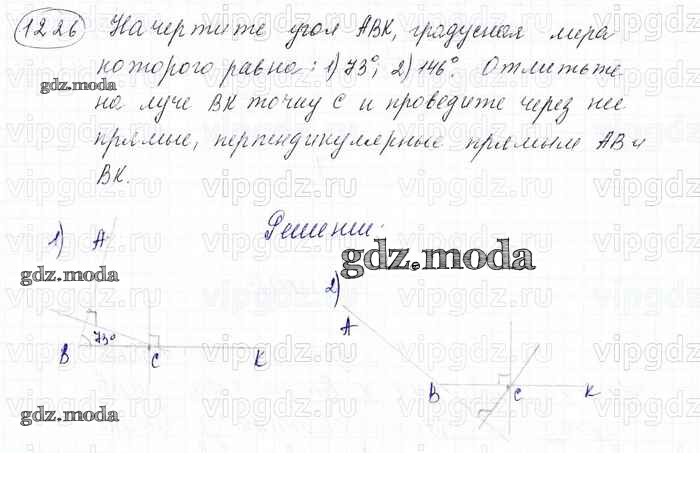 1226 Начертите угол ABK, градусная мера
которого равна: 1) 73°; 2) 146°. Отметьте
на луче BK точку C и проведите через нее
прямые, перпендикулярные прямым AB и
BK.
Решение:
1) A
2)
A
73°
B C K
B C K
gdz.moda
gdz.moda
gdz.moda
gdz.moda
gdz.moda
vipgdz.ru